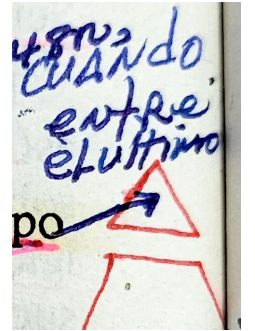 CUANDO
entre
elultimo
po